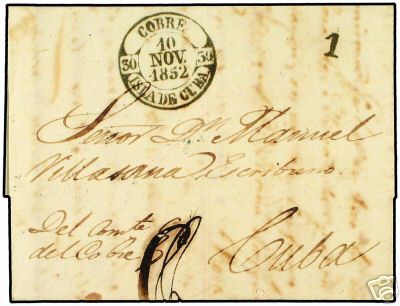 COBRE
10
NOV.
1852
30 30
ISLA DE CUBA
1
Señor Dn Manuel
Villasana Escribano.
Del Comte
del Cobre
Cuba